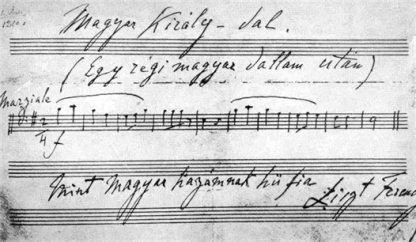 Magyar Király-dal.
(Egy régi magyar dallam után)
Marziale
f
mint magyar hazámnak hű fia
Liszt Ferenc